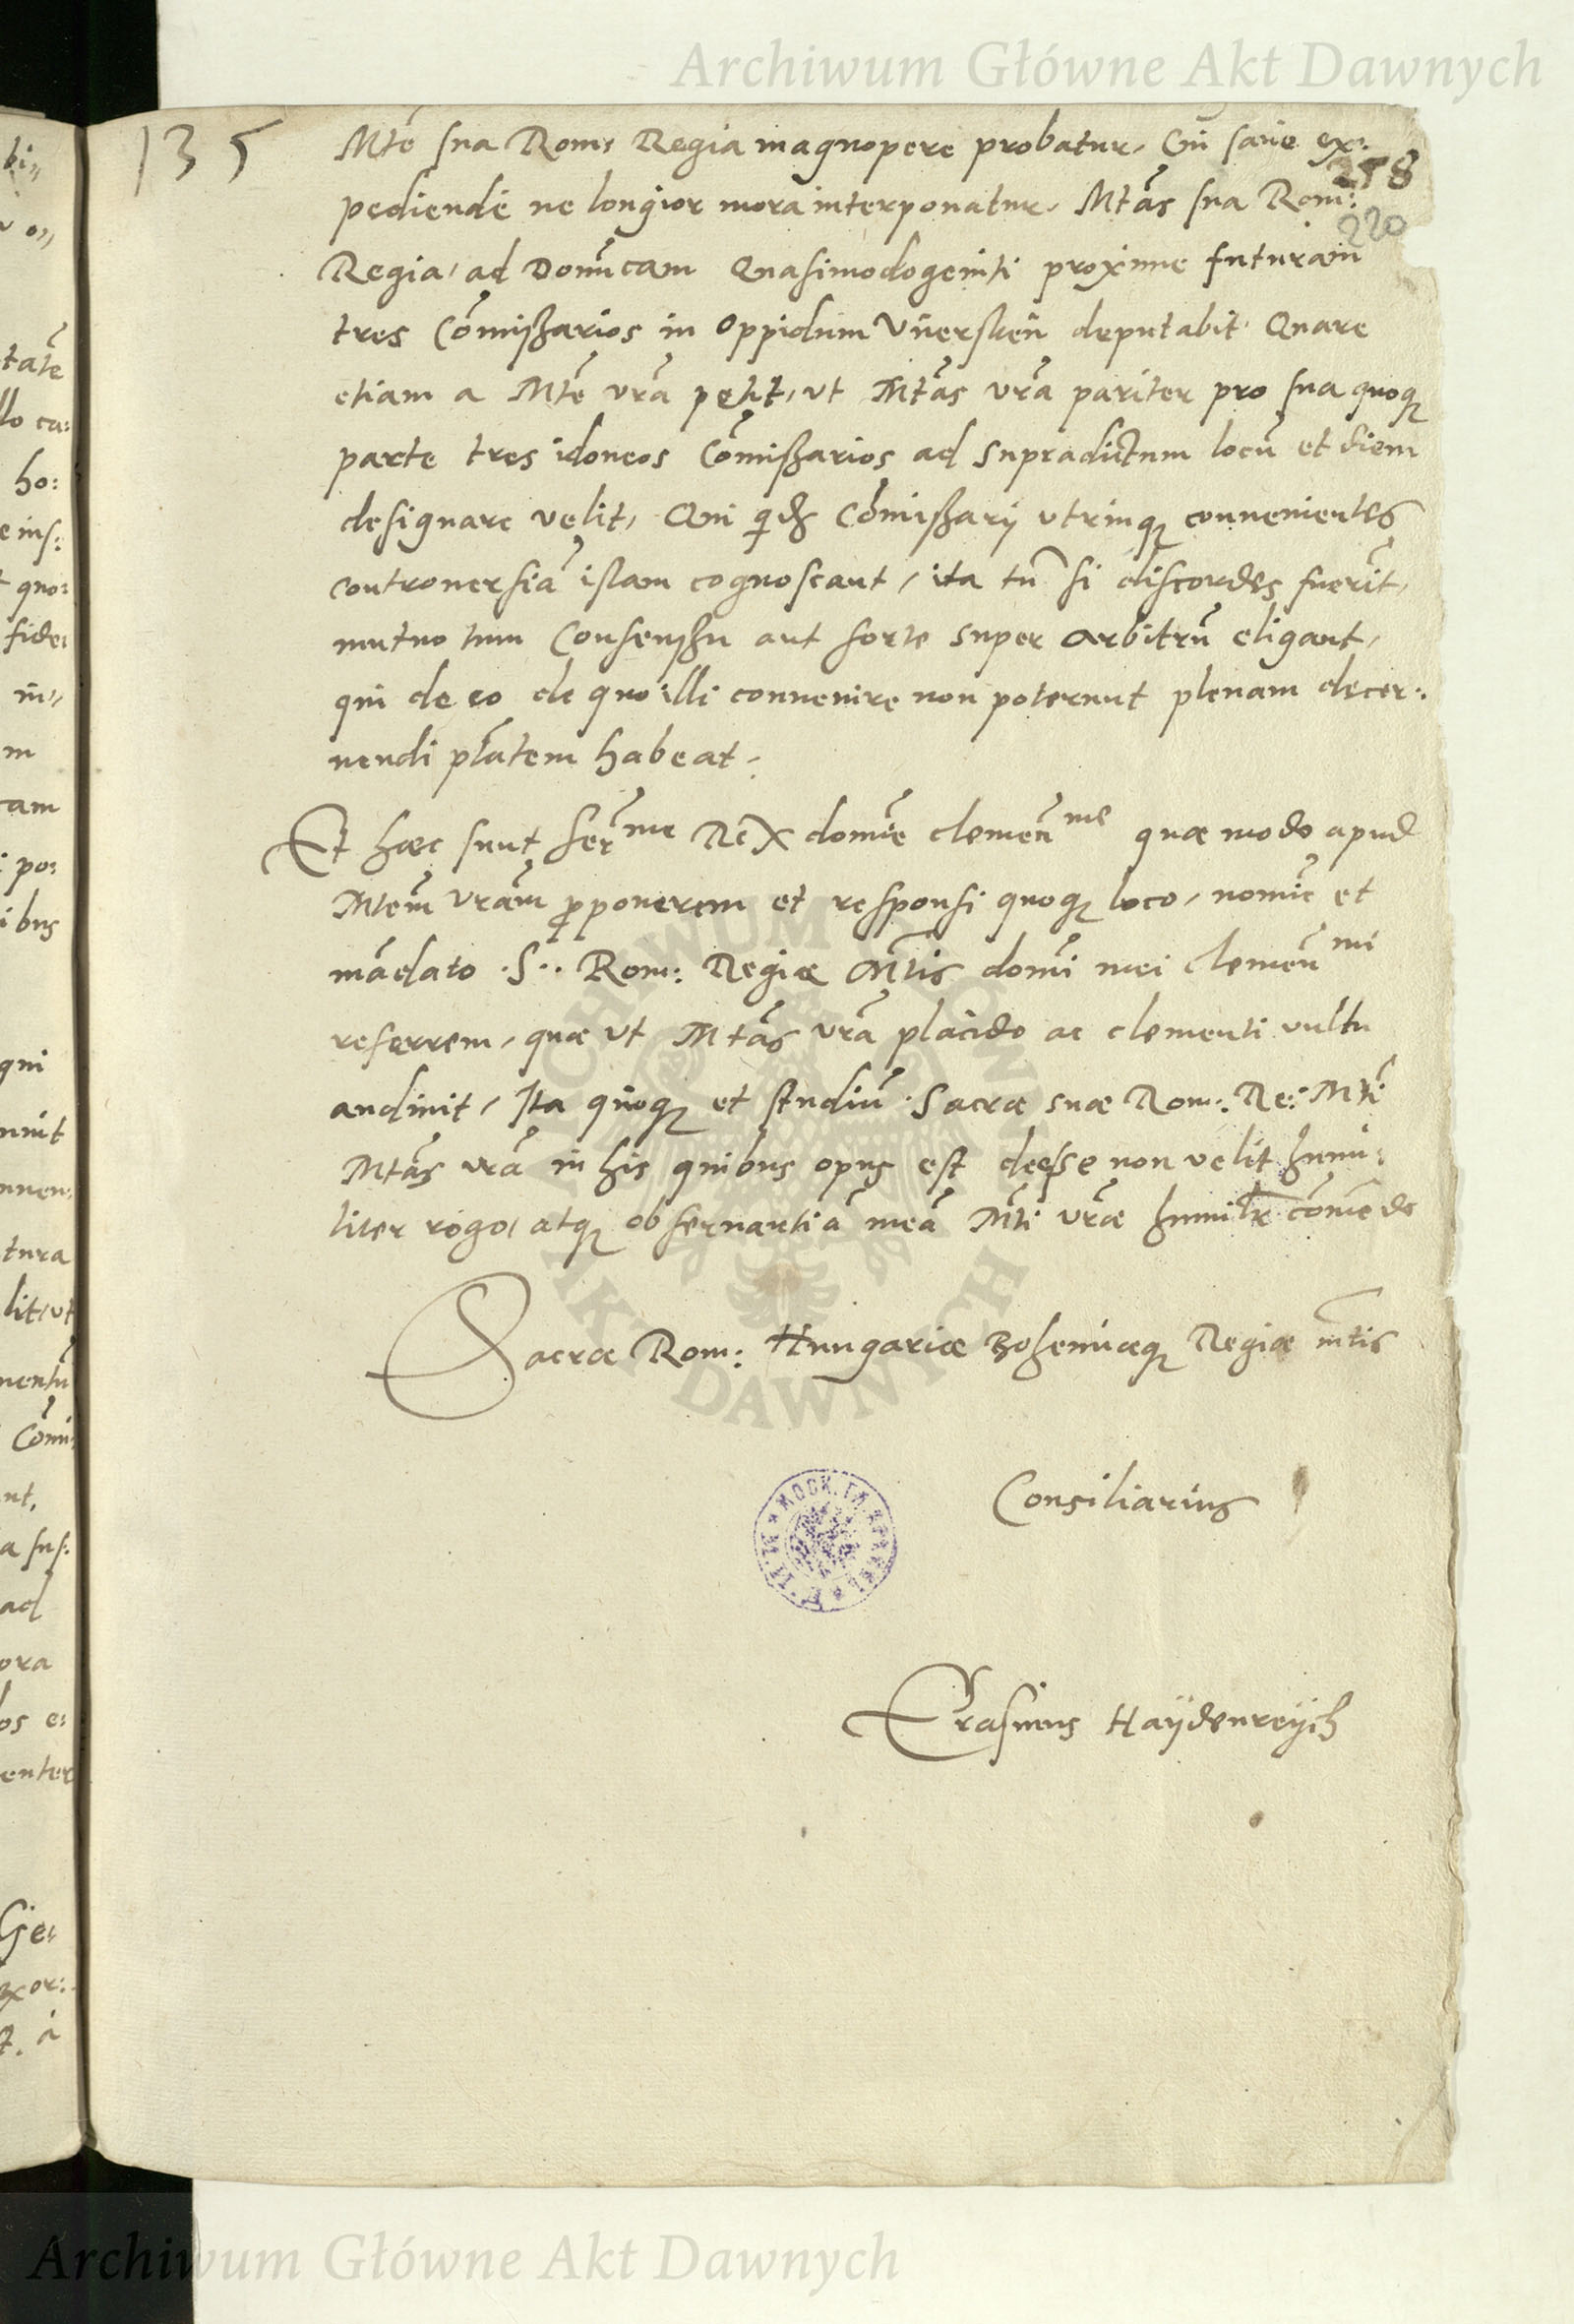 Archiwum Główne Akt Dawnych
135
Mte sua Rom: Regia magnopere probatur. Cui sane ex:
258
pediende ne longior mora interponatur, Mtas sua Rom:
220
Regia, ad Donicam Quasimodogeniti proxime futuram
tres Comißarios in Oppidum deputabit. Quare
etiam a Mte vra petit, ut Mtas vra pariter pro sua quoq
parte tres idoneos Comißarios ad supradictum locu et diem
designare velit, Qui qdē Comißarij vtrinq conuenientes
controuersia istam cognoscant, ita tn si discordes fuerit,
mutuo tum Consenßu aut sorte super Arbitru eligant,
qui de eo de quo illi conuenire non poterunt plenam decer:
nendi ptatem habeat.
Et hæc sunt Serme Rex domine clemenme quæ modo apud
Mtem vram proponerem et responsi quoq loco, nomie et
madato .S.. Rom: Regiæ Mtis domi mei clemenmi
referrem, quæ ut Mtas vra placido ac clementi vultu
audiuit, Ita quoq et studiu Sacræ suæ Rom: Re: Mti
Mtas vra in his quibus opus est deesse non velit humi:
liter rogo, atq obseruantia mea Mti vræ humiltr comedo
Sacræ Rom: Hungariæ Bohemiæq Regiæ mtis
Consiliarius
Erasmus Haÿdenreÿch
Archiwum Główne Akt Dawnych